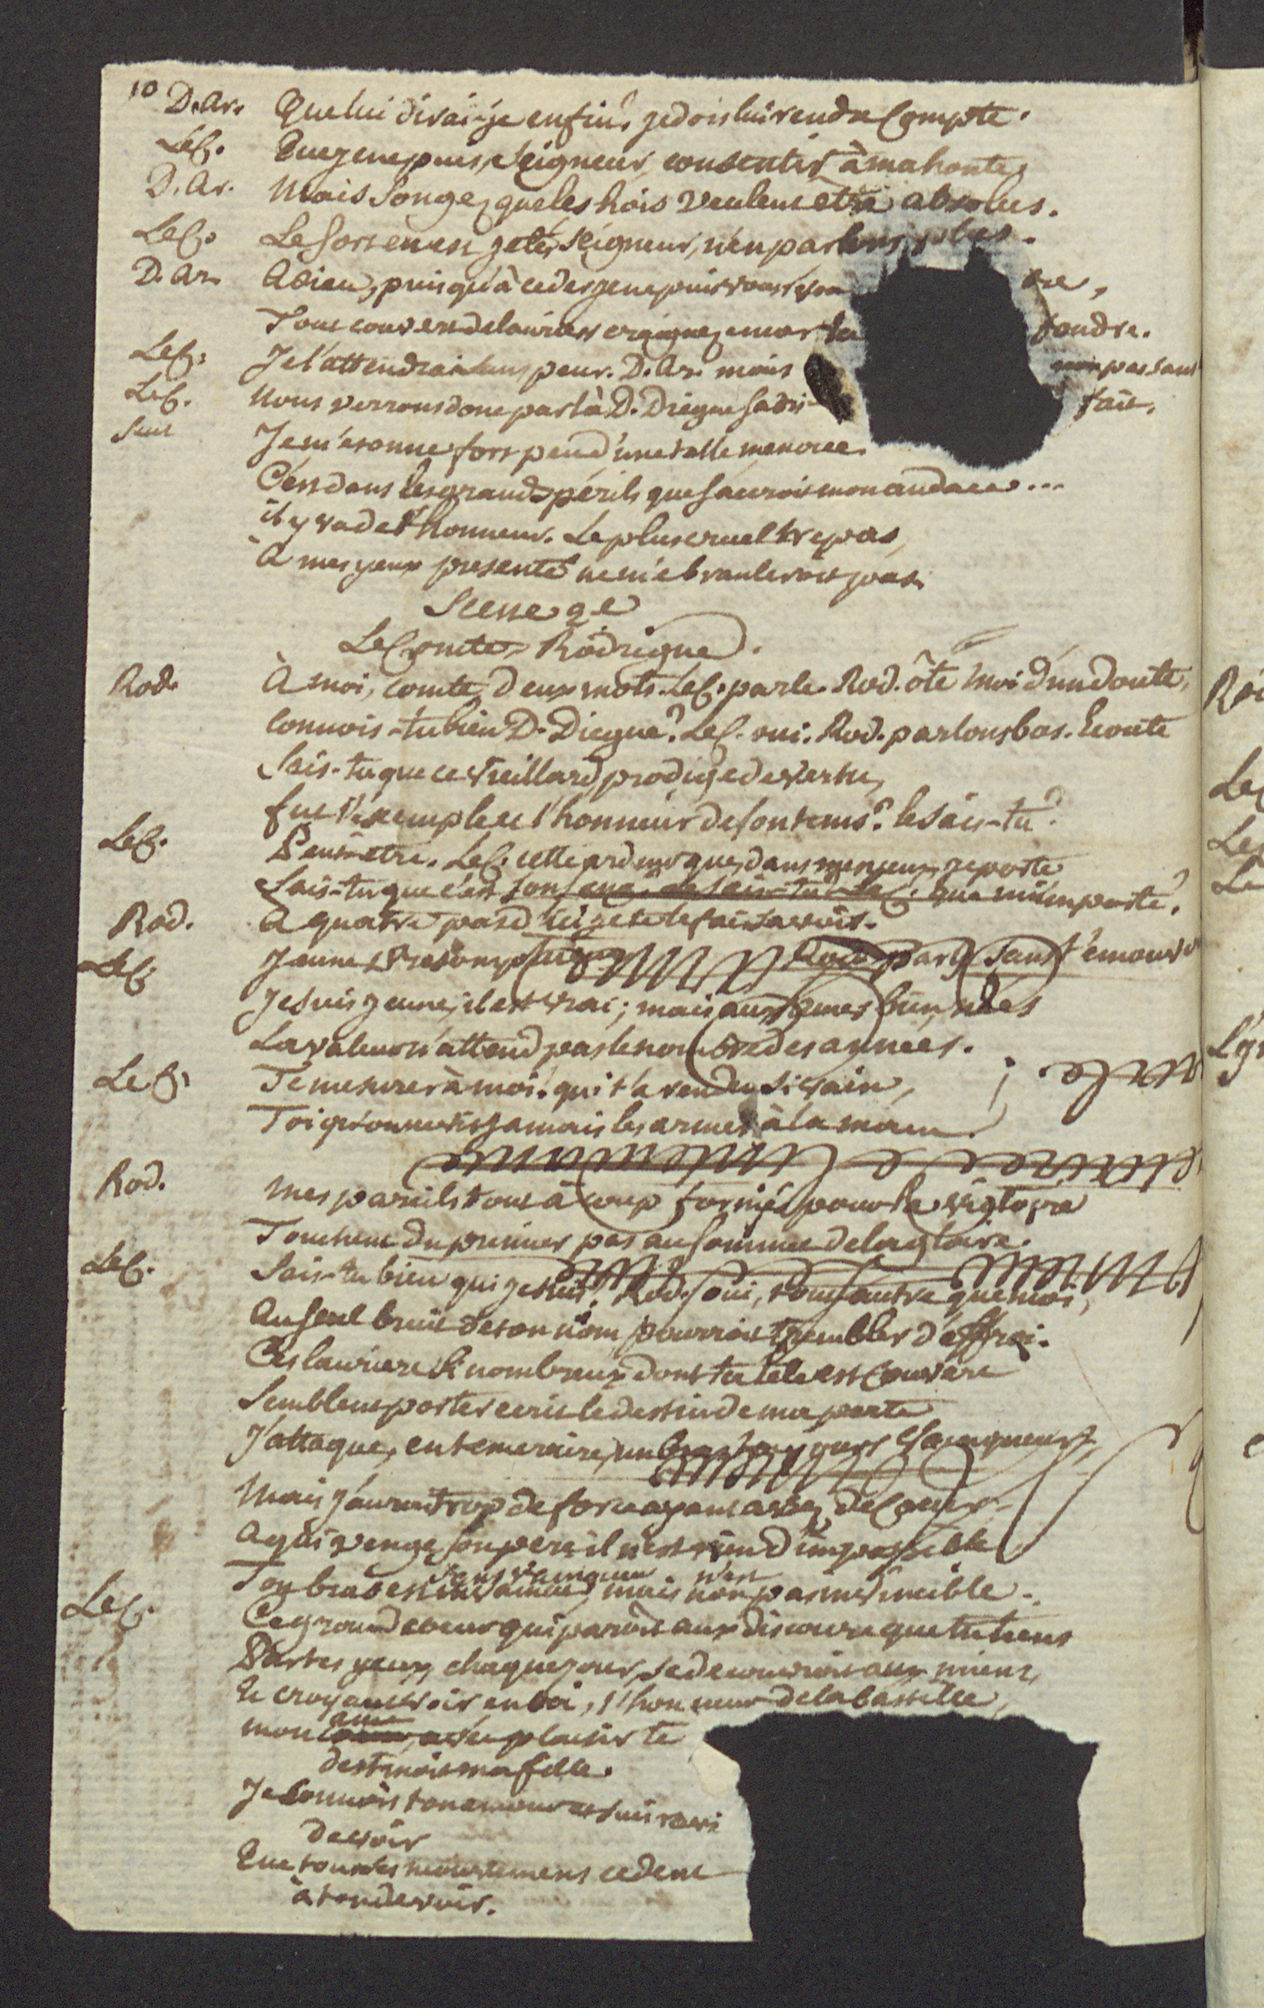 10
D. Ar. Que lui dirai-je enfin? je dois lui rendre Compte.
Le C. Que je ne puis, Seigneur, consentir à ma honte,
D. Ar. Mais Songez que les Rois veulent être absolus.
Le C. Le Sort en est jeté, Seigneur, n'en parlons plus.
D. Ar. Adieu, puisqu'à ceder je ne puis vous resou dre,
Tout couvert de lauriers craignez encor la foudre.
Le C. Je l'attendrai sans peur. D. Ar. mais non pas sans
Le C. Nous verrons donc par là D. Diegue Satis- fait.
Seul Je m'etonne fort peu d'une telle menace.
C'est dans les grands périls que s'accroit mon audace...
il y va de l'honneur. Le plus cruel trepas,
à mes yeux presenté ne m'ebranleroit pas.
Scene 2e
Le Comte, Rodrigue.
Rod. À moi, comte, deux mots. Le C. parle. Rod. ôte moi d'un doute,
Connois-tu bien D. Diegue? Le C. oui. Rod. parlons bas. Ecoute
Sais-tu que ce vieillard prodige de vertu,
fut l'exemple et l'honneur de son tems? le sais-tu?
Le C. Peut-etre. Le C. cette ardeur que dans mes yeux je porte
Sais-tu que c'est son sang, le sais-tu? Le C. que m'importe?
Rod. A quatre pas d'ici je te le fais savoir.
Le C. Jeune presomptueux Rod. parle sans t'emouvoir
Je suis jeune, il est vrai; mais aux ames bien nées
La valeur n'attend pas le nombre des années.
Le C. Te mesurer à moi! qui t'a rendu si vain,
Toi qu'on ne vit jamais les armes à la main.
Rod. Mes pareils tout à coup formés pour la victoire
Touchent du premier pas au sommet de la gloire.
Le C. Sais-tu bien qui je suis? Rod. oui, tout autre que moi,
Au seul bruit de ton nom pourroit trembler d'effroi.
Ces lauriers si nombreux dont ta tête est couverte
Semblent porter ecrit le destin de ma perte
J'attaque, en temeraire, un bras toujours vainqueur,
Mais j'aurai trop de force ayant assez de Coeur
A qui venge son pere il n'est rien d'impossible
Ton bras est invaincu, mais non pas invincible.
sans vainqueur n'est
Le C. Ce grand coeur qui paroit aux discours que tu tiens
Par tes yeux, chaque jour, se decouvroit aux miens,
Et croyant voir en toi, l'honneur de la Castille,
mon ame avec plaisir te
destinoit ma fille.
Je Connois ton amour et suis ravi
de voir
Que tous ses mouvemens cedent
à ton devoir.